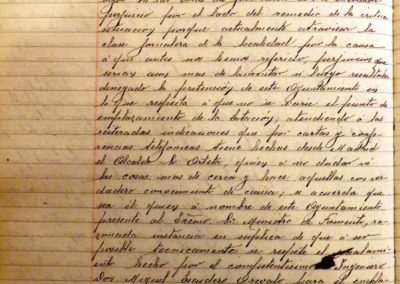 perjuicio por el lado del remedio de la crítica
situacion porque actualmente atraviesa la
clase jornalera de la localidad por la causa
á que antes nos hemos referido, perjuicios que
serian aun mas de lamentar si luego resultase
denegada la pretension de este Ayuntamiento en
lo que respecta á que no se varie el punto de
emplazamiento de la Estacion; atendiendo á las
reiteradas indicaciones que por cartas y confe-
rencias telefonicas tiene hechas desde Madrid
el Alcalde Sr. quien á no dudar vé
las cosas mas de cerca y hace aquellas con ver-
dadero conocimiento de causa; se acuerda que
sea él quien á nombre de este Ayuntamiento
presente al Excmo. Sr. Ministro de Fomento, ra-
zonada instancia en suplica de que á ser
posible tecnicamente se respete el señalami-
ento hecho por el competentisimo Ingeniero
Don Miguel para el empla-